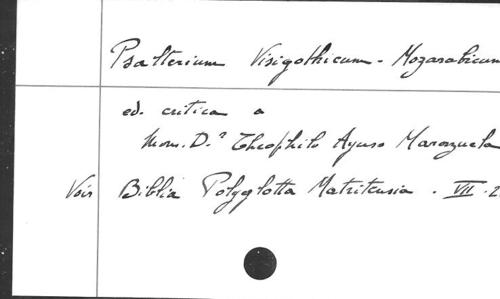 Psalterium Visigothicum - Mozarabicum
ed. critica a
Mons. D.ⁿ Theophilo Ayuso Marazuela
Voir Biblia Polyglotta Matritensia . VII . 2